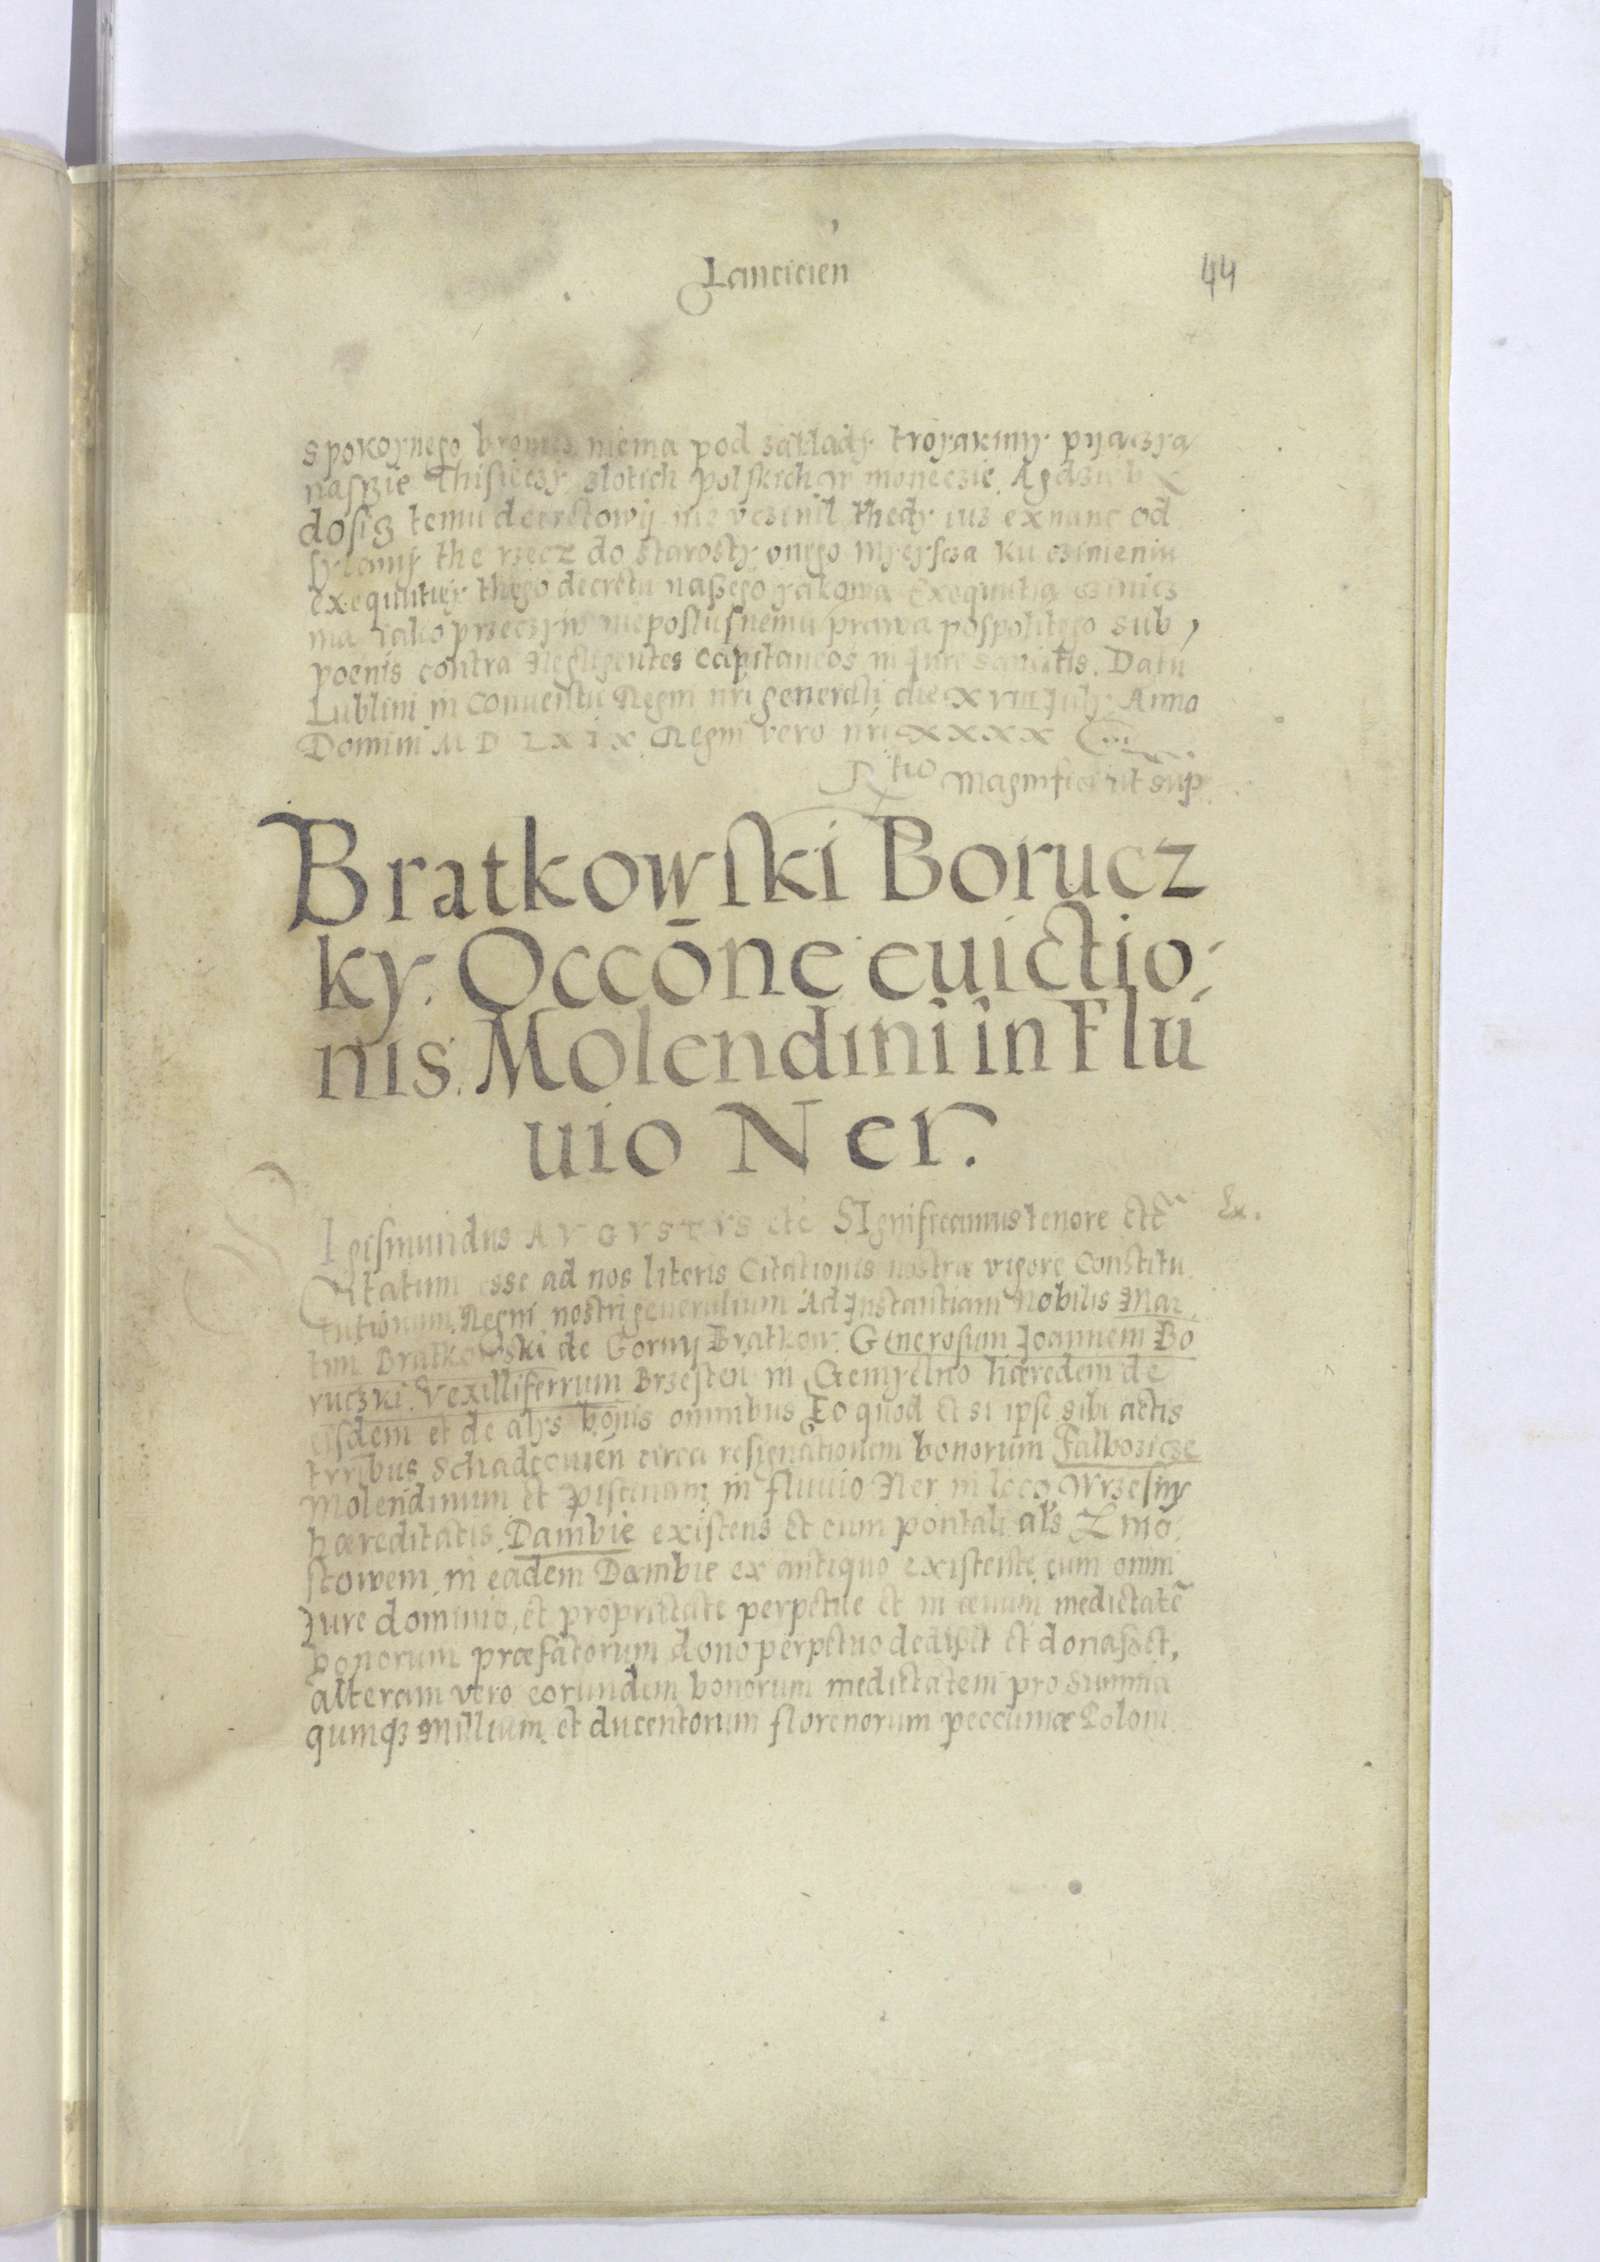 Lancicien
44
spokoynego bronicz niema pod zakładÿ troyakimÿ pyaczyą
naszie thisięczÿ złotich polskich w moneczie. A gdzieb
dosiz temu decretowÿ nie vczinil thedÿ iuz exnunc od
sylamÿ the rzecz do starostÿ onego mÿeyscza ku czinieniu
exequutieÿ thego decretu naszego yakową exequutią czinicz
ma iako przeczyw nieposlusnemu prawa pospolitego sub,
poenis contra negligentes capitaneos in jure sancitis. Datu
Lublini in conuentu Regni nri generali die XVIII July Anno
Domini MDLXIX Regni vero nri XXXX
Rtio Magnifici ut sup
Bratkowski Borucz
ky. Occōne euictio:
nis. Molendini in Flu
uio Ner.
Igismundus AVGVSTVS etc SIgnificamus tenore etc Ex.
Citatum esse ad nos literis Citationis nostræ vigore Constitu
tutionum Regni nostri generalium Ad Instantiam Nobilis Mar
tini Bratkowski de Gorny Bratkow. Generosum Joannem Bo
ruczki. Vexilliferrum Brzesten in Gemyelno hæredem de
eisdem et de alÿs bonis omnibus Eo quod et si ipse sibi actis
tribus Schadcouien circa resignationem bonorum Falborzicze
Molendinum et piscinam in fluuio Ner in loco Wrzesny
hæreditatis Dambie existens et cum pontali als Z mo:
stowem, in eadem Dambie ex antiquo existente cum omni
Jure dominio, et proprietate perpetue et in æuum medietatē
bonorum præfatorum dono perpetuo dedisset et donasset,
alteram vero eorundem bonorum medietatem pro summa
qumq3 Millium et ducentorum florenorum peccuniæ Poloni